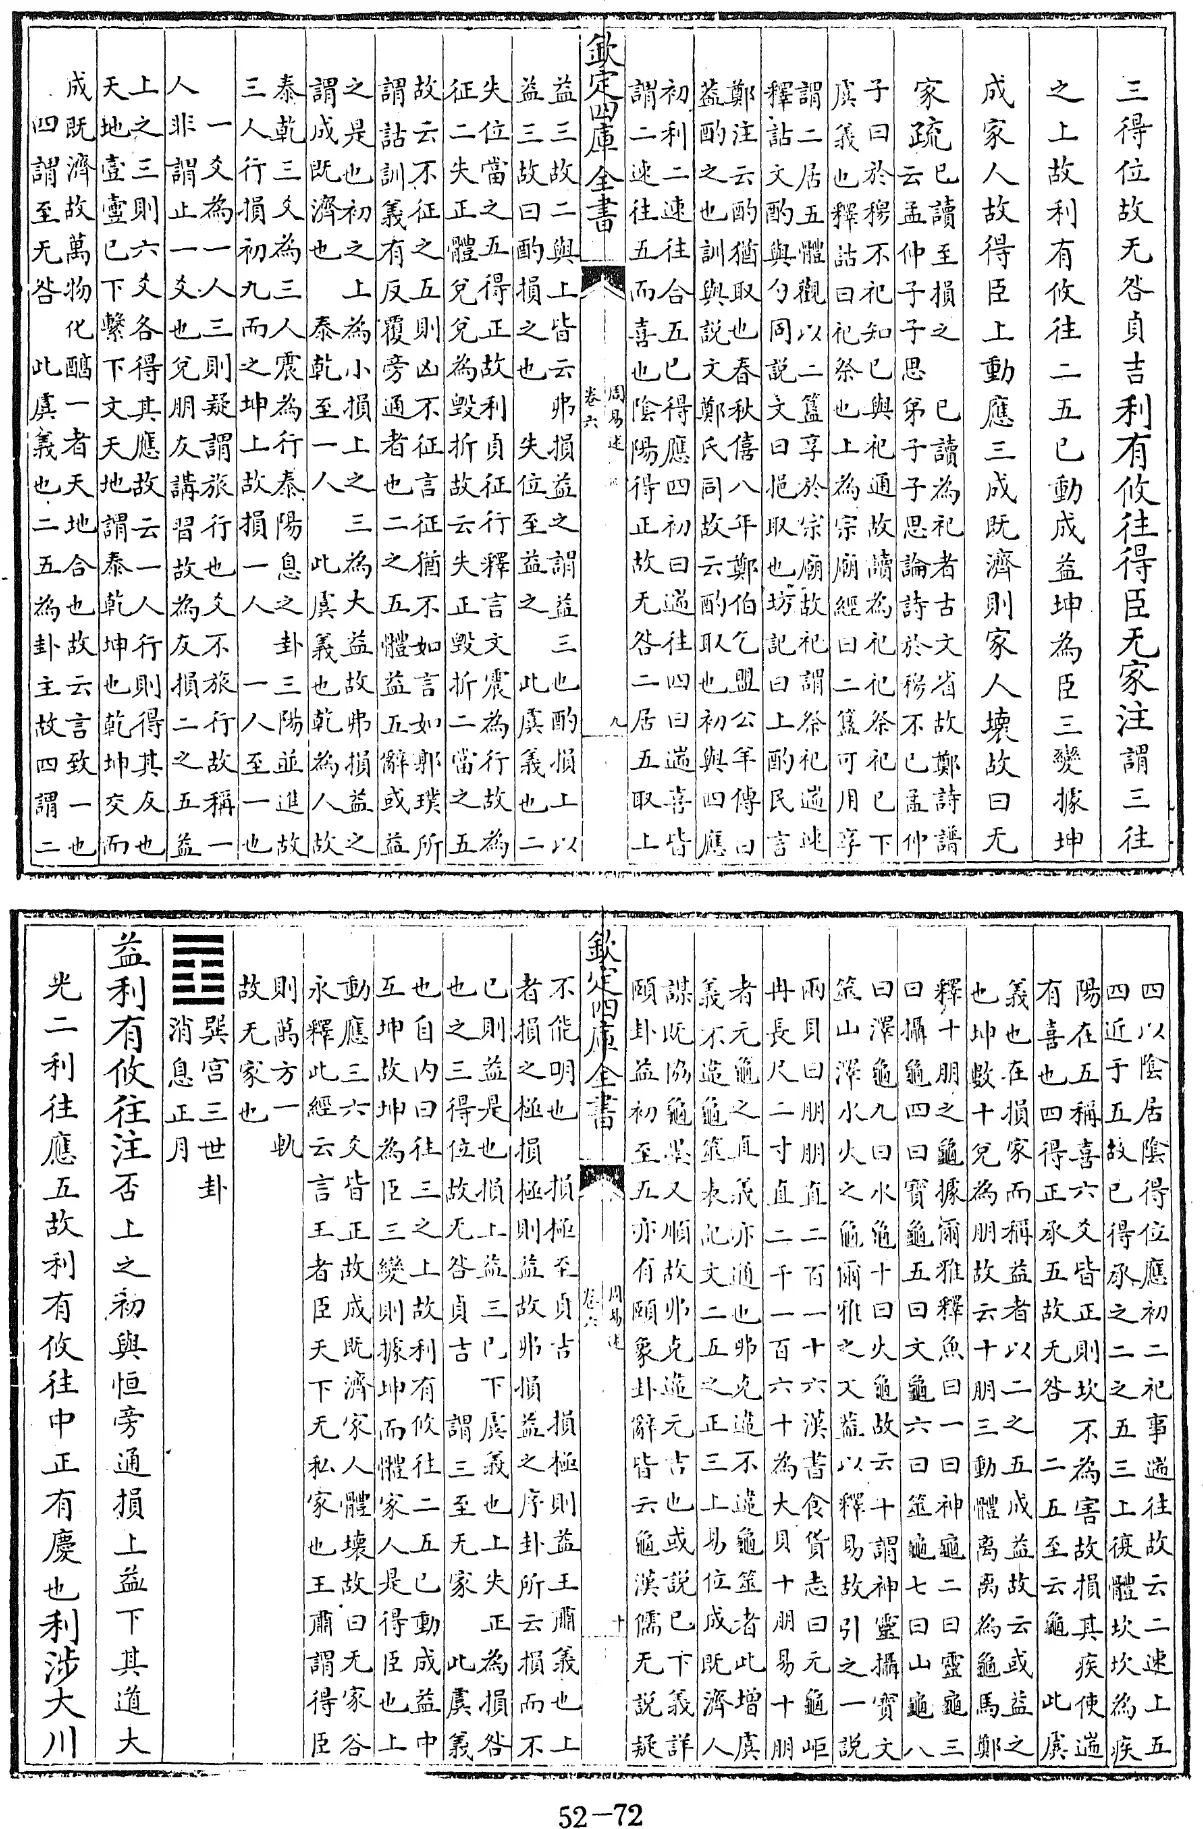 三得位故无咎貞吉利有攸往得臣无家注謂三往
之上故利有攸往二五已動成益坤為臣三變據坤
成家人故得臣上動應三成既濟則家人壞故曰无
家疏已讀至損之　已讀為祀者古文省故鄭詩譜
云孟仲子子思弟子子思論詩於穆不已孟仲
子曰於穆不祀知已與祀通故讀為祀祀祭祀已下
虞義也釋詁曰祀祭也上為宗廟經曰二簋可用享
謂二居五體觀以二簋享於宗廟故祀謂祭祀遄速
釋詁文酌與勺同說文曰挹取也坊記曰上酌民言
鄭注云酌猶取也春秋僖八年鄭伯乞盟公羊傳曰
蓋酌之也訓與說文鄭氏同故云酌取也初與四應
初利二速往合五已得應四初曰遄往四曰遄喜皆
謂二速往五而喜也陰陽得正故无咎二居五取上
欽定四庫全書
周易述
卷六
九
益三故二與上皆云弗損益之謂益三也酌損上以
益三故曰酌損之也　失位至益之　此虞義也二
失位當之五得正故利貞征行釋言文震為行故為
征二失正體兌兌為毀折故云失正毀折二當之五
故云不征之五則凶不征言征猶不如言如郭璞所
謂詁訓義有反覆旁通者也二之五體益五辭或益
之是也初之上為小損上之三為大益故弗損益之
謂成既濟也　泰乾至一人　此虞義也乾為人故
泰乾三爻為三人震為行泰陽息之卦三陽並進故
三人行損初九而之坤上故損一人　一人至一也
一爻為一人三則疑謂旅行也爻不旅行故稱一
人非謂止一爻也兌朋友講習故為友損二之五益
上之三則六爻各得其應故云一人行則得其友也
天地壹壺已下繫下文天地謂泰乾坤也乾坤交而
成既濟故萬物化醕一者天地合也故云言致一也
四謂至无咎　此虞義也二五為卦主故四謂二
四以陰居陰得位應初二祀事遄往故云二速上五
四近于五故已得承之二之五三上復體坎坎為疾
陽在五稱喜六爻皆正則坎不為害故損其疾使遄
有喜也四得正承五故无咎　二五至云龜　此虞
義也在損家而稱益者以二之五成益故云或益之
也坤數十兌為朋故云十朋三動體離離為龜馬鄭
釋十朋之龜據爾雅釋魚曰一曰神龜二曰靈龜三
曰攝龜四曰寶龜五曰文龜六曰筮龜七曰山龜八
曰澤龜九曰水龜十曰火龜故云十謂神靈攝寶文
筮山澤水火之龜爾雅之文益以釋易故引之一說
兩貝曰朋朋直二百一十六漢書食貨志曰元龜岠
冉長尺二寸直二千一百六十為大貝十朋易十朋
者元龜之直義亦通也弗克違不違龜筮者此增虞
義不違龜筮表記文二五之正三上易位成既濟人
謀既協龜墨又順故弗克違元吉也或說已下義詳
頤卦益初至五亦有頤象卦辭皆云龜漢儒无說疑
欽定四庫全書
周易述
卷六
十
不能明也　損極至貞吉　損極則益王肅義也上
者損之極損極則益故弗損益之序卦所云損而不
已則益是也損上益三已下虞義也上失正為損咎
也之三得位故无咎貞吉　謂三至无家　此虞義
也自內曰往三之上故利有攸往二五已動成益中
互坤故坤為臣三變則據坤而體家人是得臣也上
動應三六爻皆正故成既濟家人體壞故曰无家谷
永釋此經云言王者臣天下无私家也王肅謂得臣
則萬方一軌
故无家也
巽宮三世卦
消息正月
益利有攸往注否上之初與恒旁通損上益下其道大
光二利往應五故利有攸往中正有慶也利涉大川
52-72